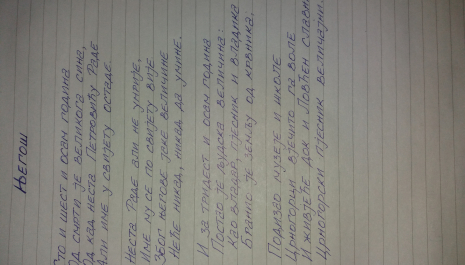 Његош
Сто и шест и осам година
Од смрти је великога сина,
Од кад неста Петровићу Раде
Али име у свијету остаде.
Неста Раде али не умрије,
Име му се по свијету вије
Због његове јаке величине
Неће никад, никад да умине.
И за тридест и осам година
Постао је људска величина:
Као владар, пјесник и владика
Бранио је земљу од крвника.
Подизао музеје и школе
Црногорци вјечито га воле
И живјеће док и Ловћен славни
Црногорски пјесник величајни.